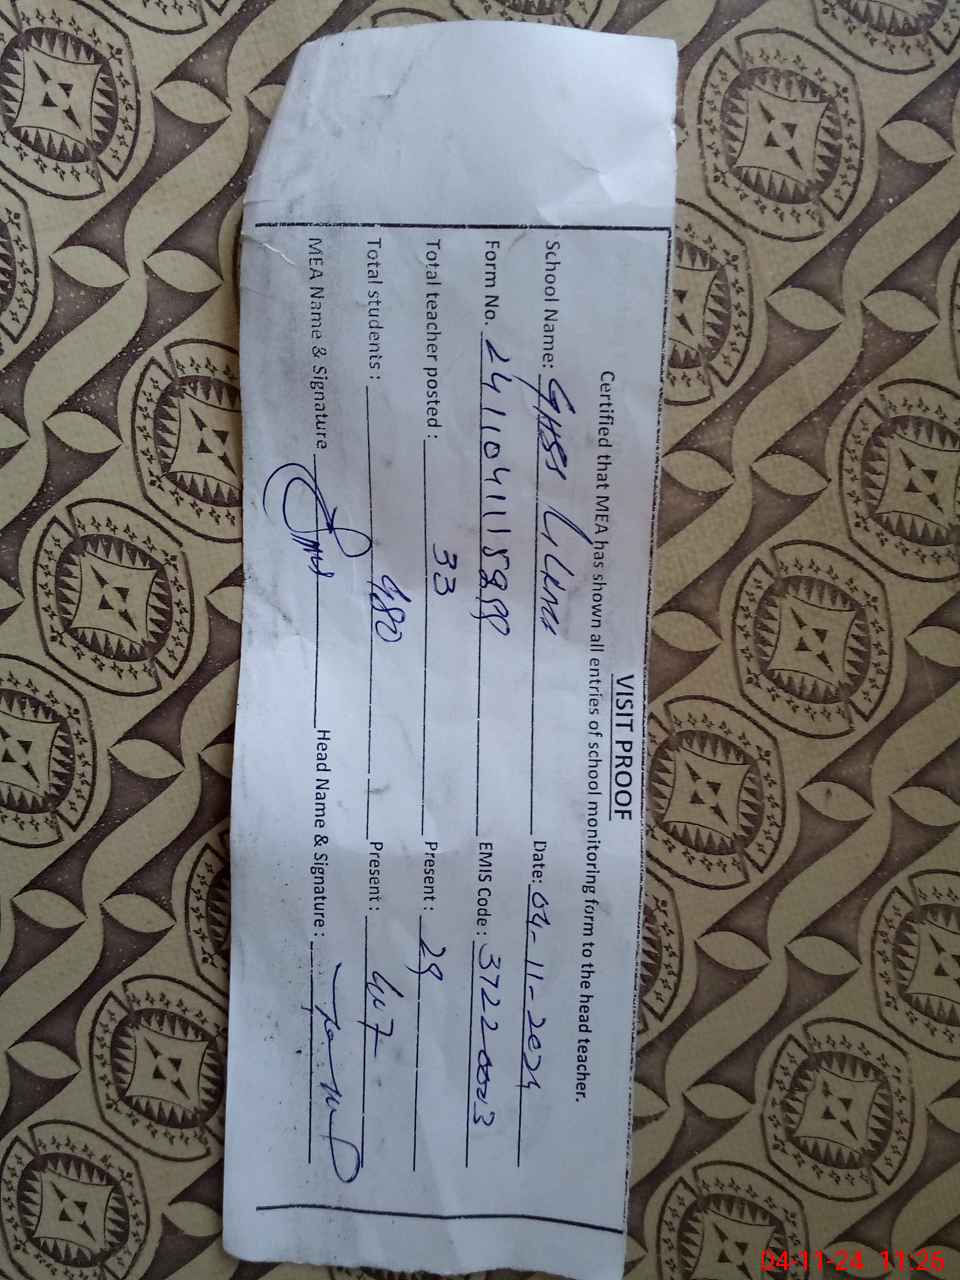 VISIT PROOF
Certified that MEA has shown all entries of school monitoring form to the head teacher.
School Name: GHSS Date: 04-11-2024
Form No. EMIS Code: 37220023
Total teacher posted: 33 Present: 29
Total students: 480 Present: 447
MEA Name & Signature Head Name & Signature:
04-11-24 11:26